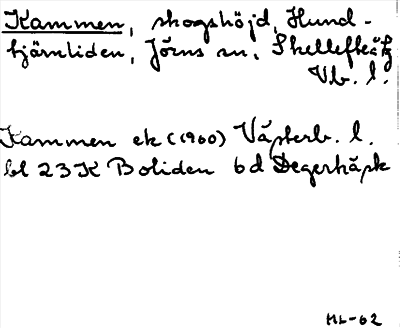 Kammen, skogshöjd, Hund-
tjärnliden, Jörns sn, Skellefteå tg
Vb. l.
Kammen ek (1960) Västerb. l.
bl 23K Boliden 6d Degerträsk
ML-62